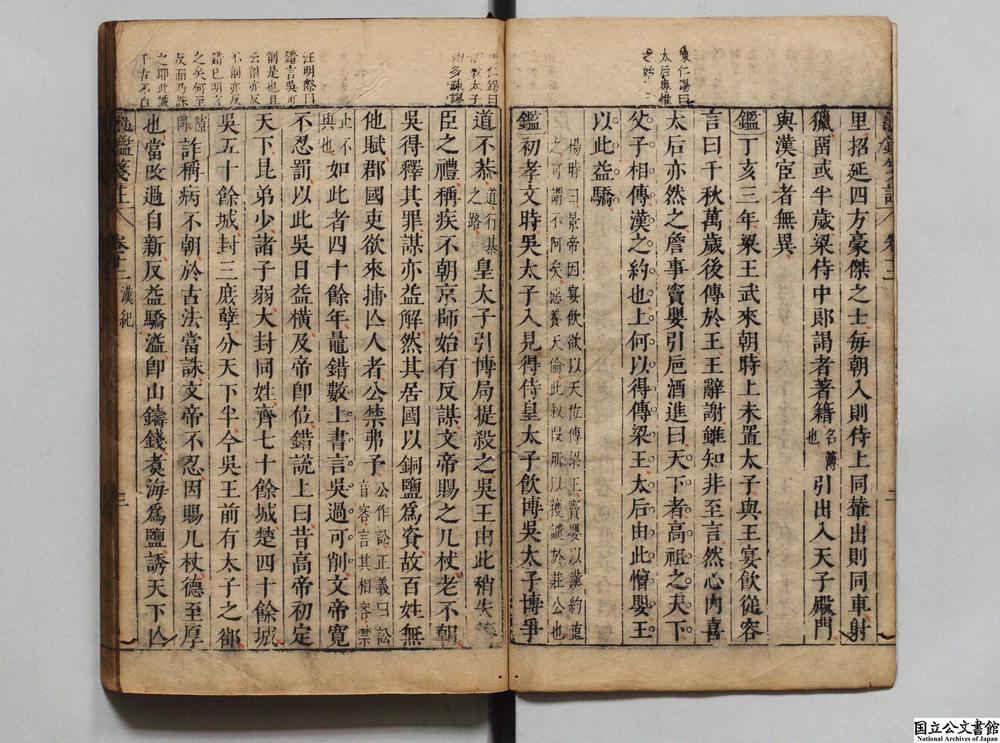 里招延四方豪傑之士每朝入則侍上同輦出則同車射
獵苗或半歲梁侍中郎謁者著籍名簿也引出入天子殿門
與漢宦者無異
鑑丁亥三年梁王武來朝時上未置太子與王宴飲從容
言曰千秋萬歲後傳於王王辭謝雖知非至言然心內喜
太后亦然之詹事竇嬰引巵酒進曰天下者高祖之天下
父子相傳漢之約也上何以得傳梁王太后由此憎嬰王
以此益驕
楊時曰景帝因宴飲欲以天位傳梁王竇嬰以漢約直
之可謂不阿矣惡養天倫此叔段所以獲譏於莊公也
鑑初孝文時吳太子入見得侍皇太子飲博吳太子博爭
道不恭道行棊之路皇太子引博局提殺之吳王由此稍失藩
臣之禮稱疾不朝京師始有反謀文帝賜之几杖老不朝
吳得釋其罪謀亦益解然其居國以銅鹽爲資故百姓無
他賦郡國吏欲來捕亾人者公禁弗予公作訟正義曰訟音容言其相容禁
止不與也如此者四十餘年鼂錯數上書言吳過可削文帝寬
不忍罰以此吳日益橫及帝卽位錯說上曰昔高帝初定
天下昆弟少諸子弱大封同姓齊七十餘城楚四十餘城
吳五十餘城封三庶孽分天下半今吳王前有太子之郤
隙同詐稱病不朝於古法當誅文帝不忍因賜几杖德至厚
也當改過自新反益驕溢卽山鑄錢煑海爲鹽誘天下亾
鑑箋註 卷十二 漢紀
陳仁錫曰
太后與權
汪明際曰
錯言吳可
削是也且
云削亦反
不削亦反
錯巳明言
之矣何至
反而乃誅
之耶此誠
千古不白
国立公文書館
National Archives of Japan